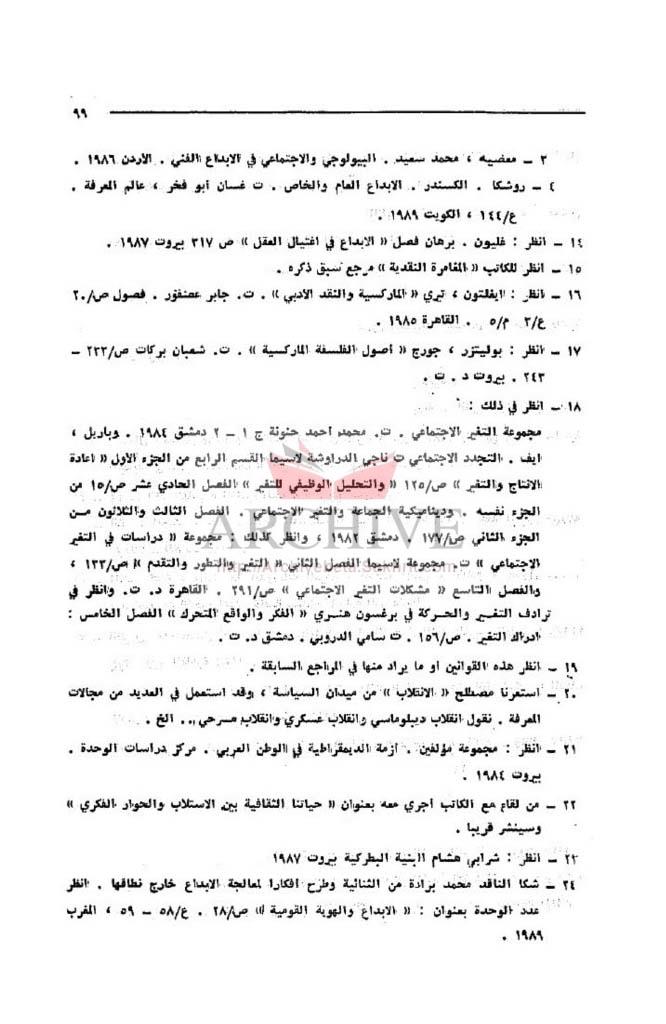 ٩٩
٣ ـ معضيه ، محمد سعيد . البيولوجي والاجتماعي في الابداع الفني . الاردن ١٩٨٦ .
٤ ـ روشكا . الكسندر . الابداع العام والخاص . ت غسان أبو فخر ، عالم المعرفة .
ع/١٤٤ ، الكويت ١٩٨٩ .
١٤ ـ انظر : غليون . برهان فصل « الابداع في اغتيال العقل » ص ٣١٧ بيروت ١٩٨٧ .
١٥ ـ انظر للكاتب « المغامرة النقدية » مرجع سبق ذكره .
١٦ ـ انظر : ايفلتون ، تيري « الماركسية والنقد الادبي » . ت. جابر عصفور . فصول ص/٢٠
ع/٣ م/٥ . القاهرة ١٩٨٥ .
١٧ ـ انظر : بوليتزر ، جورج « أصول الفلسفة الماركسية » . ت. شعبان بركات ص/٢٣٣ ـ
٢٤٣ . بيروت د . ت .
١٨ ـ انظر في ذلك :
مجموعة التغير الاجتماعي . ت. محمد احمد حنونة ج ١ ـ ٢ دمشق ١٩٨٤ . وباريل ،
ايف . التجدد الاجتماعي ت ناجي الدراوشة لاسيما القسم الرابع من الجزء الاول « اعادة
الانتاج والتغير » ص/١٢٥ « والتحليل الوظيفي للتغير » الفصل الحادي عشر ص/١٥ من
الجزء نفسه . وديناميكية الجماعة والتغير الاجتماعي . الفصل الثالث والثلاثون من
الجزء الثاني ص/١٧٧ . دمشق ١٩٨٢ ، وانظر كذلك : مجموعة « دراسات في التغير
الاجتماعي » ت. مجموعة لاسيما الفصل الثاني « التغير والتطور والتقدم » ص/١٣٣ ،
والفصل التاسع « مشكلات التغير الاجتماعي » ص/٢٩١ . القاهرة د. ت. وانظر في
ترادف التغير والحركة في برغسون هنري « الفكر والواقع المتحرك » الفصل الخامس :
ادراك التغير . ص/١٥٦ . ت سامي الدروبي . دمشق د. ت .
١٩ ـ انظر هذه القوانين او ما يراد منها في المراجع السابقة .
٢٠ ـ استعرنا مصطلح « الانقلاب » من ميدان السياسة ، وقد استعمل في العديد من مجالات
المعرفة . نقول انقلاب ديبلوماسي وانقلاب عسكري وانقلاب مسرحي ... الخ .
٢١ ـ انظر : مجموعة مؤلفين . ازمة الديمقراطية في الوطن العربي . مركز دراسات الوحدة .
بيروت ١٩٨٤ .
٢٢ ـ من لقاء مع الكاتب أجري معه بعنوان « حياتنا الثقافية بين الاستلاب والحوار الفكري »
وسينشر قريبا .
٢٣ ـ انظر : شرابي هشام البنية البطركية بيروت ١٩٨٧
٢٤ ـ شكا الناقد محمد برادة من الثنائية وطرح افكارا لمعالجة الابداع خارج نطاقها . انظر
عدد الوحدة بعنوان : « الابداع والهوية القومية » ص/٢٨ . ع/٥٨ ـ ٥٩ ، المغرب
١٩٨٩ .
ARCHIVE
http://Archivebeta.Sakhrit.com